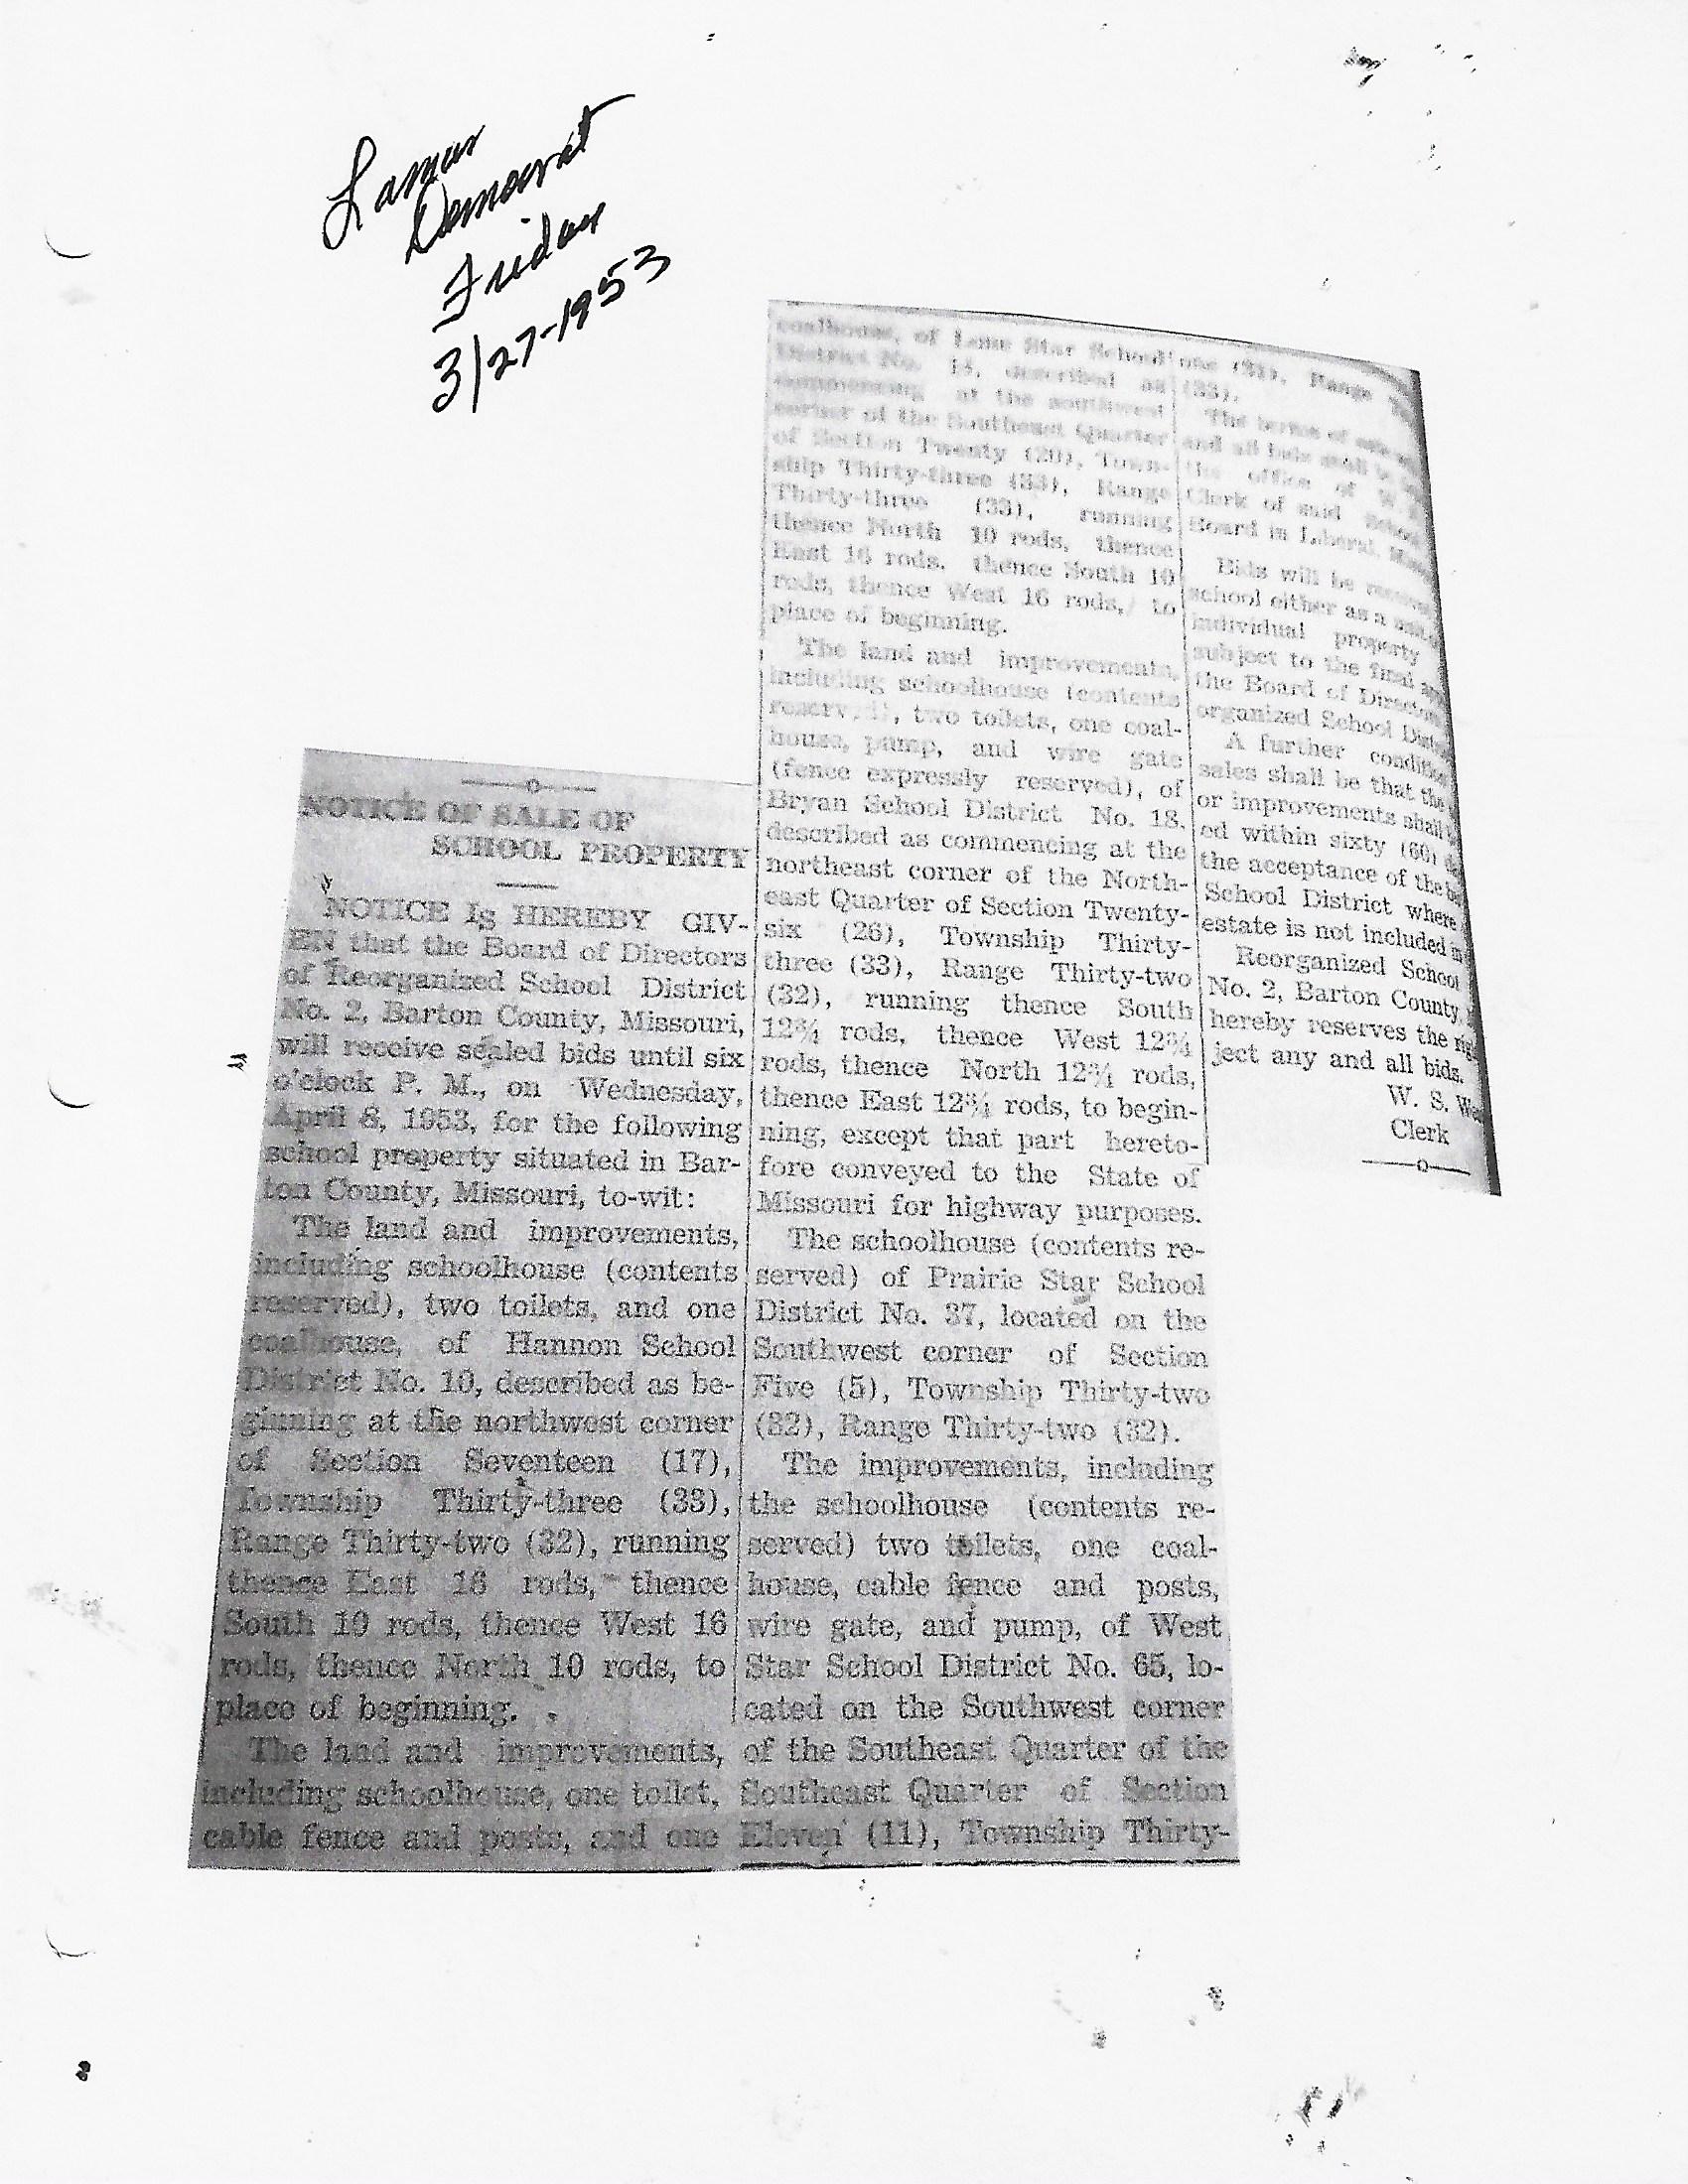 Lamar
Democrat
Friday
3/27-1953
NOTICE OF SALE OF
SCHOOL PROPERTY
NOTICE Is HEREBY GIV-
EN that the Board of Directors
of Reorganized School District
No. 2, Barton County, Missouri,
will receive sealed bids until six
o'clock P. M., on Wednesday,
April 8, 1953, for the following
school property situated in Bar-
ton County, Missouri, to-wit:
The land and improvements,
including schoolhouse (contents
reserved), two toilets, and one
coalhouse, of Hannon School
District No. 10, described as be-
ginning at the northwest corner
of Section Seventeen (17),
Township Thirty-three (33),
Range Thirty-two (32), running
thence East 16 rods, thence
South 10 rods, thence West 16
rods, thence North 10 rods, to
place of beginning.
The land and improvements,
including schoolhouse, one toilet,
cable fence and posts, and one
coalhouse, of Lone Star School
District No. 14, described as
commencing at the southwest
corner of the Southeast Quarter
of Section Twenty (20), Town-
ship Thirty-three (33), Range
Thirty-three (33), running
thence North 10 rods, thence
East 16 rods, thence South 10
rods, thence West 16 rods, to
place of beginning.
The land and improvements,
including schoolhouse (contents
reserved), two toilets, one coal-
house, pump, and wire gate
(fence expressly reserved), of
Bryan School District No. 18,
described as commencing at the
northeast corner of the North-
east Quarter of Section Twenty-
six (26), Township Thirty-
three (33), Range Thirty-two
(32), running thence South
12¾ rods, thence West 12¾
rods, thence North 12¾ rods,
thence East 12¾ rods, to begin-
ning, except that part hereto-
fore conveyed to the State of
Missouri for highway purposes.
The schoolhouse (contents re-
served) of Prairie Star School
District No. 37, located on the
Southwest corner of Section
Five (5), Township Thirty-two
(32), Range Thirty-two (32).
The improvements, including
the schoolhouse (contents re-
served) two toilets, one coal-
house, cable fence and posts,
wire gate, and pump, of West
Star School District No. 65, lo-
cated on the Southwest corner
of the Southeast Quarter of the
Southeast Quarter of Section
Eleven (11), Township Thirty-
one (31), Range
(33).
The terms of
and all bids shall be
the office of W.
Clerk of said School
Board in Liberal,
Bids will be
school either as a
individual property
subject to the final
the Board of
organized School
A further
sales shall be that the
or improvements shall
ed within sixty (60)
the acceptance of the
School District where
estate is not included
Reorganized School
No. 2, Barton County,
hereby reserves the
ject any and all bids.
W. S.
Clerk